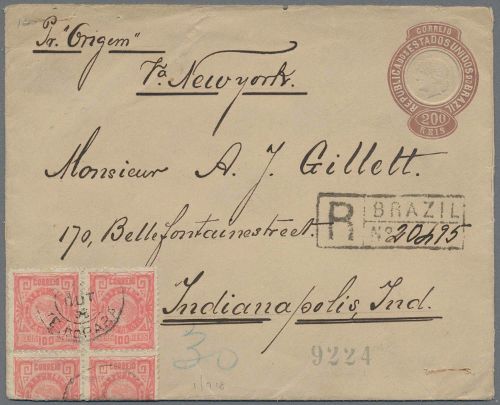 Pr. "Origem"
Va Newyork.
CORREIO
REPUBLICA DOS ESTADOS UNIDOS DO BRAZIL
200
REIS
Monsieur A. J. Gillett.
R BRAZIL
No 20495
170, Bellefontainestreet.
Indianapolis, Ind.
CORREIO CORREIO
100 100
OUT
30
9224